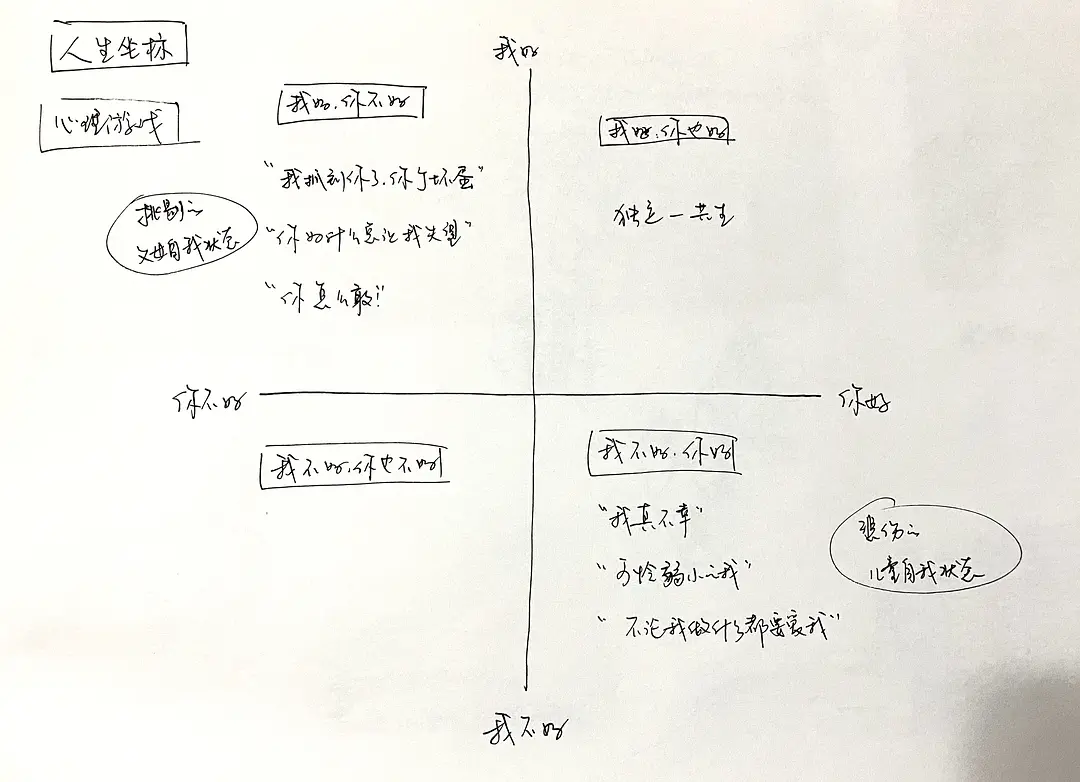 人生坐标
心理游戏
我好
我好.你不好
我好.你也好
"我抓到你了.你个坏蛋"
挑剔的
父母自我状态
"你为什么总让我失望"
"你怎么敢!"
独立—共生
你不好
你好
我不好.你也不好
我不好.你好
"我真不幸"
"可怜弱小的我"
"不论我做什么都要爱我"
悲伤的
儿童自我状态
我不好